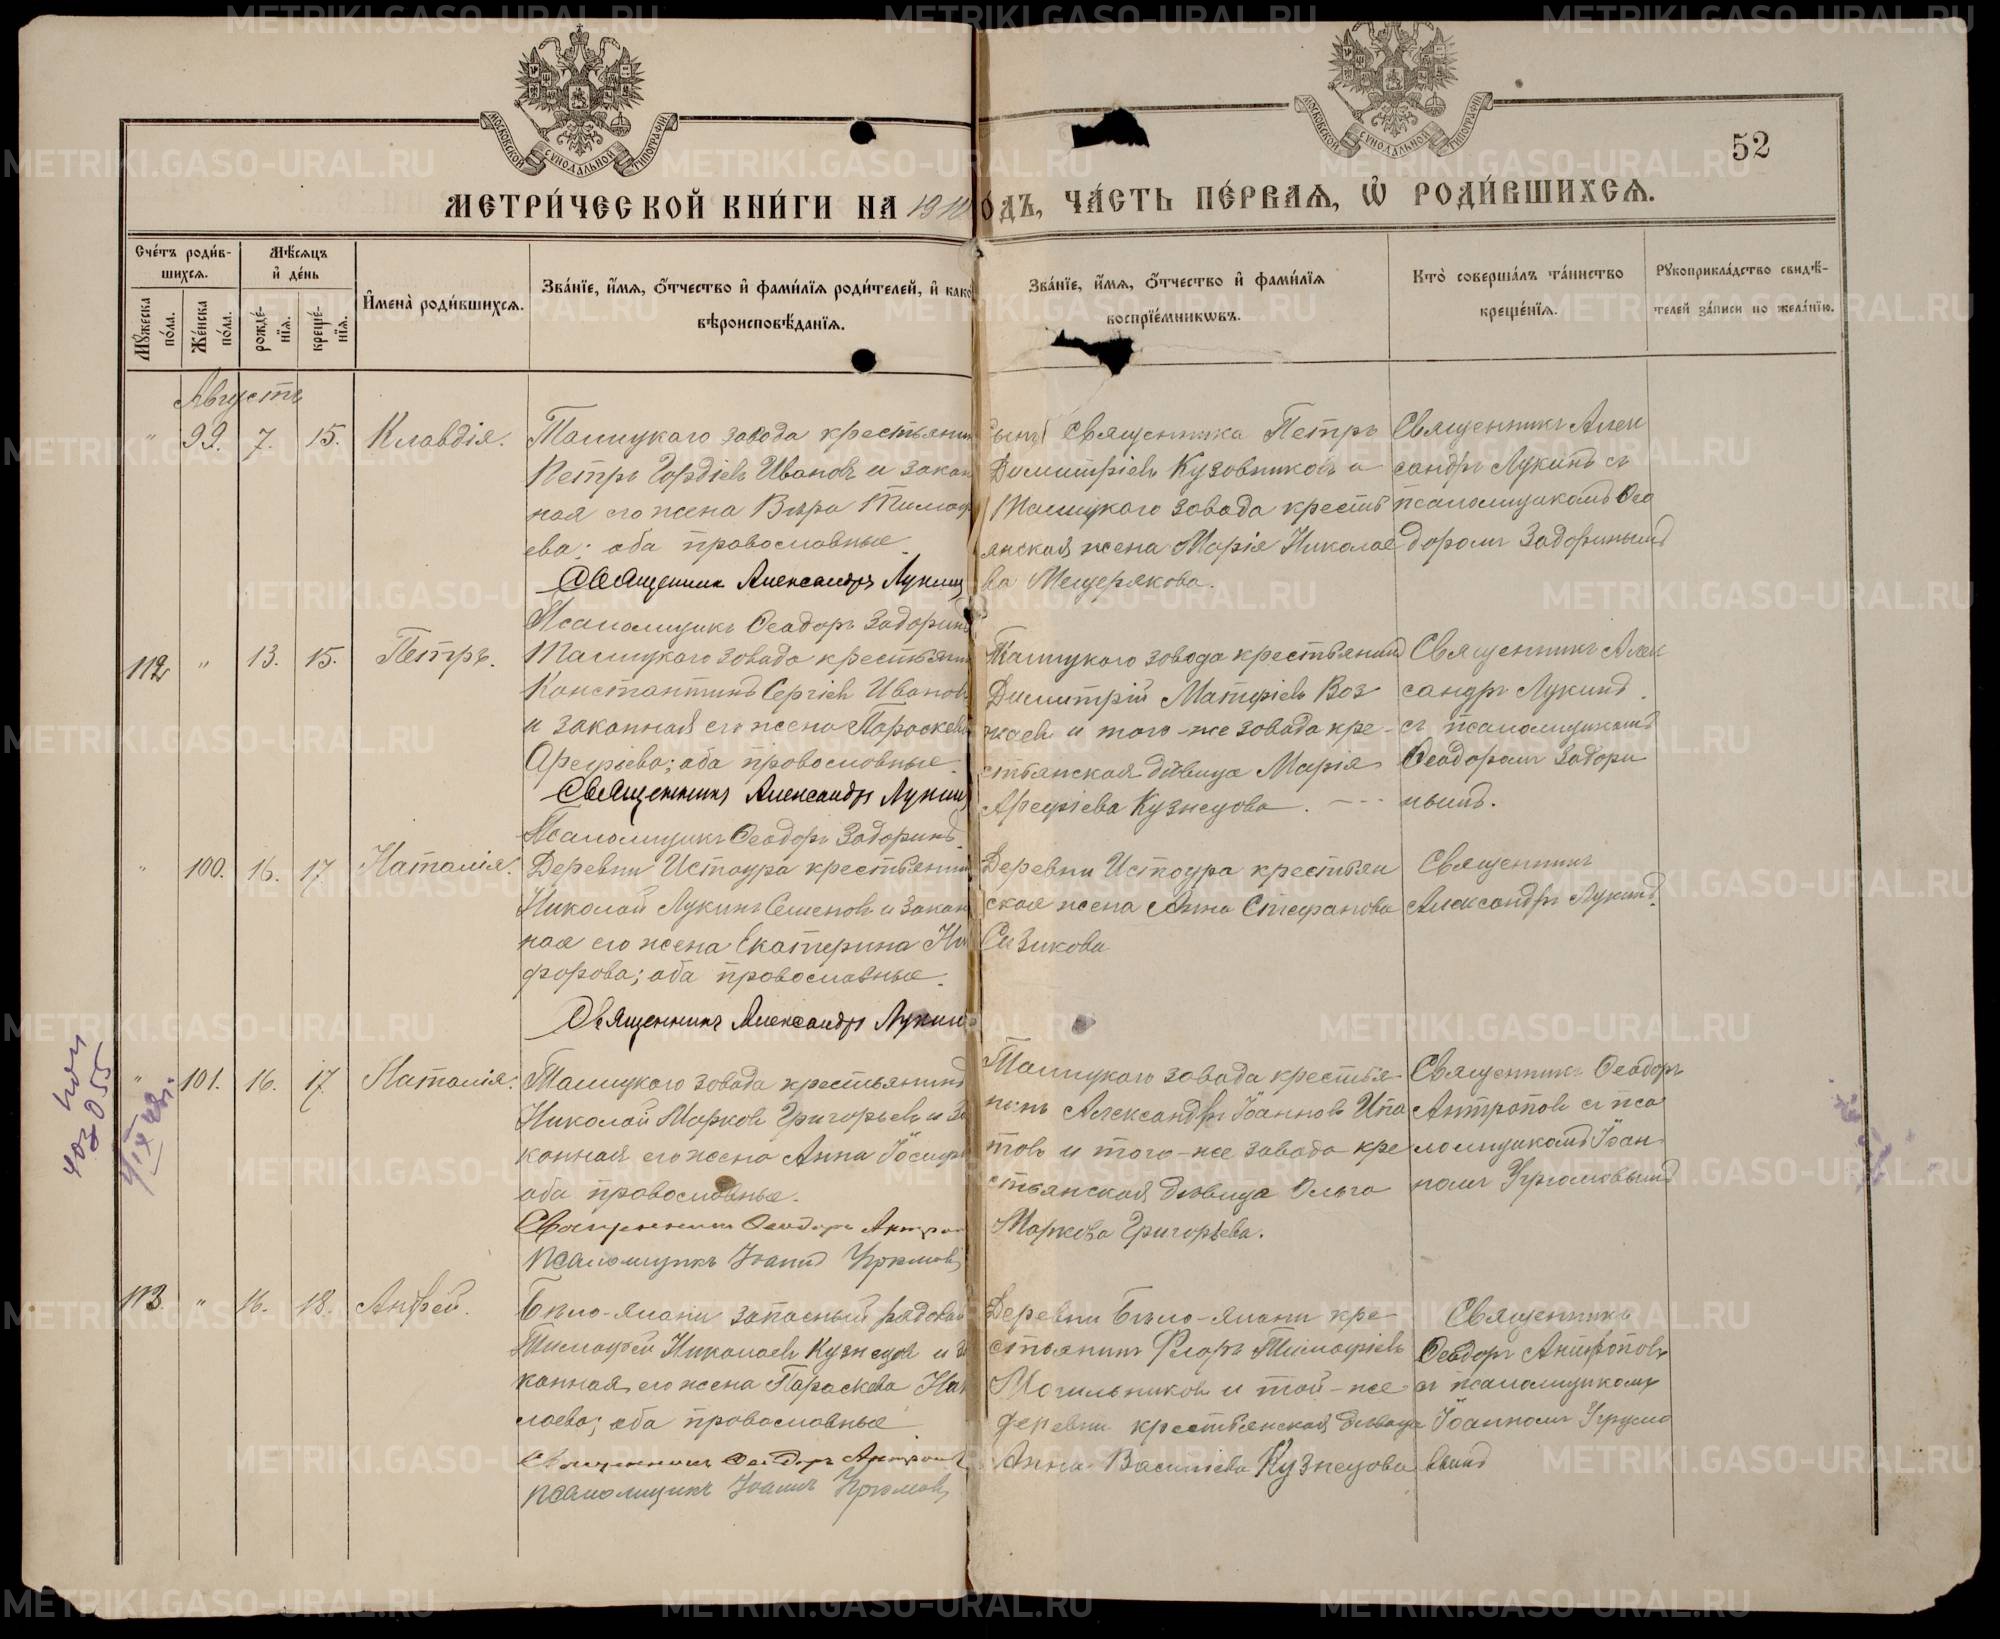 МОСКОВСКОЙ СѴНОДАЛЬНОЙ ТИПОГРАФІИ
МОСКОВСКОЙ СѴНОДАЛЬНОЙ ТИПОГРАФІИ
52
МЕТРИ́ЧЕСКОЙ КНИ́ГИ НА 1910 ОДЪ, ЧА́СТЬ ПЕ́РВАЯ, Ѡ РОДИ́ВШИХСЯ.
Сче́тъ роди́вшихся.
Мꙋжеска по́ла.
Же́нска по́ла.
Мѣ́сяцъ и҆ де́нь
рожде́нїя.
креще́нїя.
И҆мена̀ роди́вшихся.
Зва́нїе, и҆́мя, ѻ҆́тчество и҆ фами́лїя роди́телей, и҆ како
вѣроисповѣ́данїя.
Зва́нїе, и҆́мя, ѻ҆́тчество и҆ фами́лїя
воспрїе́мникωвъ.
Кто̀ соверша́лъ та́инство
креще́нїя.
Рꙋкоприкла́дство свидѣ́-
телей за́писи по жела́нїю.
Августъ
" 99. 7. 15. Клавдія.
Талицкаго завода крестьянин
Петръ Гордіевъ Ивановъ и закон
ная его жена Вѣра Тимоф
ева; оба православные.
Священник Александръ Лукин
Псаломщикъ Ѳеодоръ Задоринъ
Сынъ Священника Петръ
Димитріевъ Кузовниковъ и
Талицкаго завода кресть
янская жена Марія Николае
ва Мещерякова.
Священникъ Алек
сандръ Лукинъ съ
псаломщикомъ Ѳео
доромъ Задоринымъ
112 " 13. 15. Петръ.
Талицкаго завода крестьянин
Константинъ Сергіев Иванов
и законная его жена Параскева
Арефіева; оба православные.
Священникъ Александръ Лукин
Псаломщикъ Ѳеодоръ Задоринъ.
Талицкаго завода крестьянинъ
Димитрій Матфіевъ Воз
жаевъ и того-же завода кре-
стьянская дѣвица Марія
Арефіева Кузнецова.
Священникъ Алек
сандръ Лукинъ.
съ псаломщикомъ
Ѳеодоромъ Задори
нымъ.
" 100. 16. 17 Наталія.
Деревни Истоура крестьянин
Николай Лукинъ Семеновъ и закон
ная его жена Екатерина Ни
форова; оба православные.
Священникъ Александръ Лукин
Деревни Истоура крестьян
ская жена Анна Стефанова
Сизикова
Священникъ
Александръ Лукинъ.
" 101. 16. 17. Наталія.
Талицкаго завода крестьянинъ
Николай Марковъ Григорьевъ и за
конная его жена Анна Іосиф
оба православные.
Священник Ѳеодоръ Антроп
Псаломщикъ Іоаннъ Угрюмовъ
Талицкаго завода крестья-
нинъ Александръ Іоанновъ Ипа
товъ и того-же завода кре
стьянская дѣвица Ольга
Маркова Григорьева.
Священникъ Ѳеодоръ
Антроповъ съ пса
ломщикомъ Іоан
номъ Угрюмовымъ
113. " 16. 18. Андрей.
Бѣло-ялани запасный рядовой
Тимофей Николаевъ Кузнецовъ и за
конная его жена Параскева Ни
лаева; оба православные
Священникъ Ѳеодоръ Антропов
псаломщикъ Іоаннъ Угрюмовъ
Деревни Бѣло-ялани кре-
стьянинъ Флоръ Тимофіевъ
Могильниковъ и той-же
деревни крестьянская дѣвица
Анна Василіева Кузнецова
Священникъ
Ѳеодоръ Антроповъ
съ псаломщикомъ
Іоанномъ Угрюмо
вымъ
METRIKI.GASO-URAL.RU